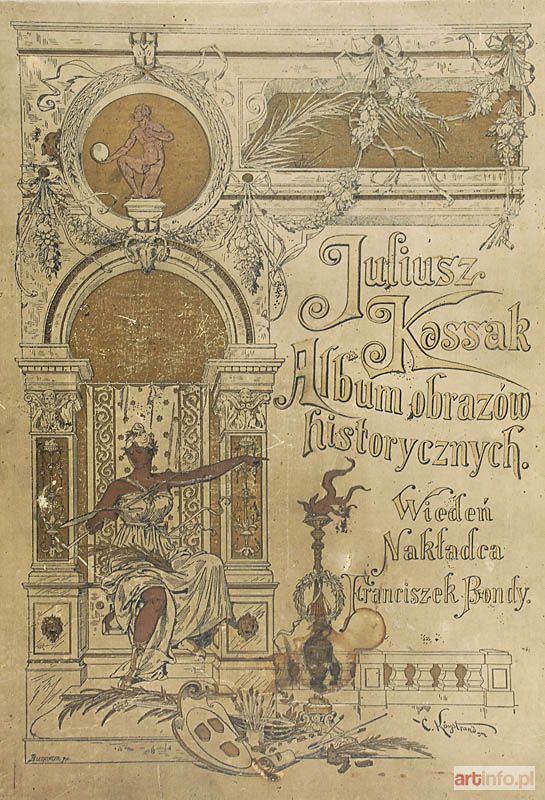 Juliusz
Kossak
Album obrazów
historycznych.
Wiedeń
Nakładca
Franciszek Bondy.
artinfo.pl